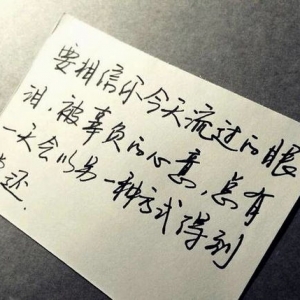 要相信你今天流过的眼
泪,被辜负的心意,总有
一天会以另一种方式得到
偿还.